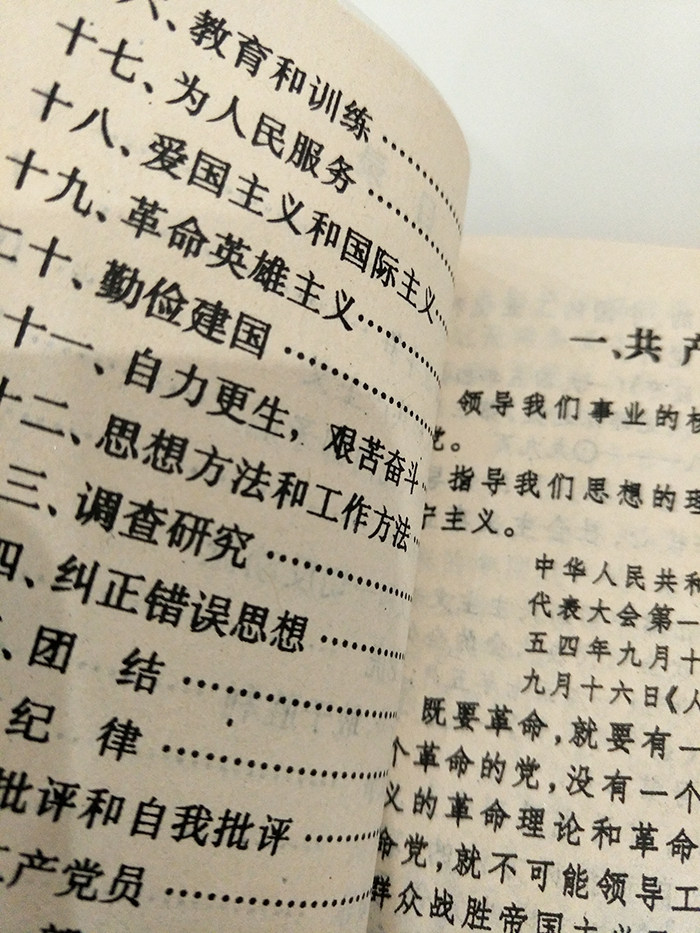 六、教育和训练
十七、为人民服务
十八、爱国主义和国际主义
十九、革命英雄主义
二十、勤俭建国
十一、自力更生，艰苦奋斗
十二、思想方法和工作方法
三、调查研究
四、纠正错误思想
、团 结
纪 律
批评和自我批评
产党员
一、共产
领导我们事业的核
党。
指导我们思想的理
主义。
中华人民共和
代表大会第一
五四年九月十
九月十六日《人
既要革命，就要有一
个革命的党，没有一个
义的革命理论和革命
命党，就不可能领导工
群众战胜帝国主义